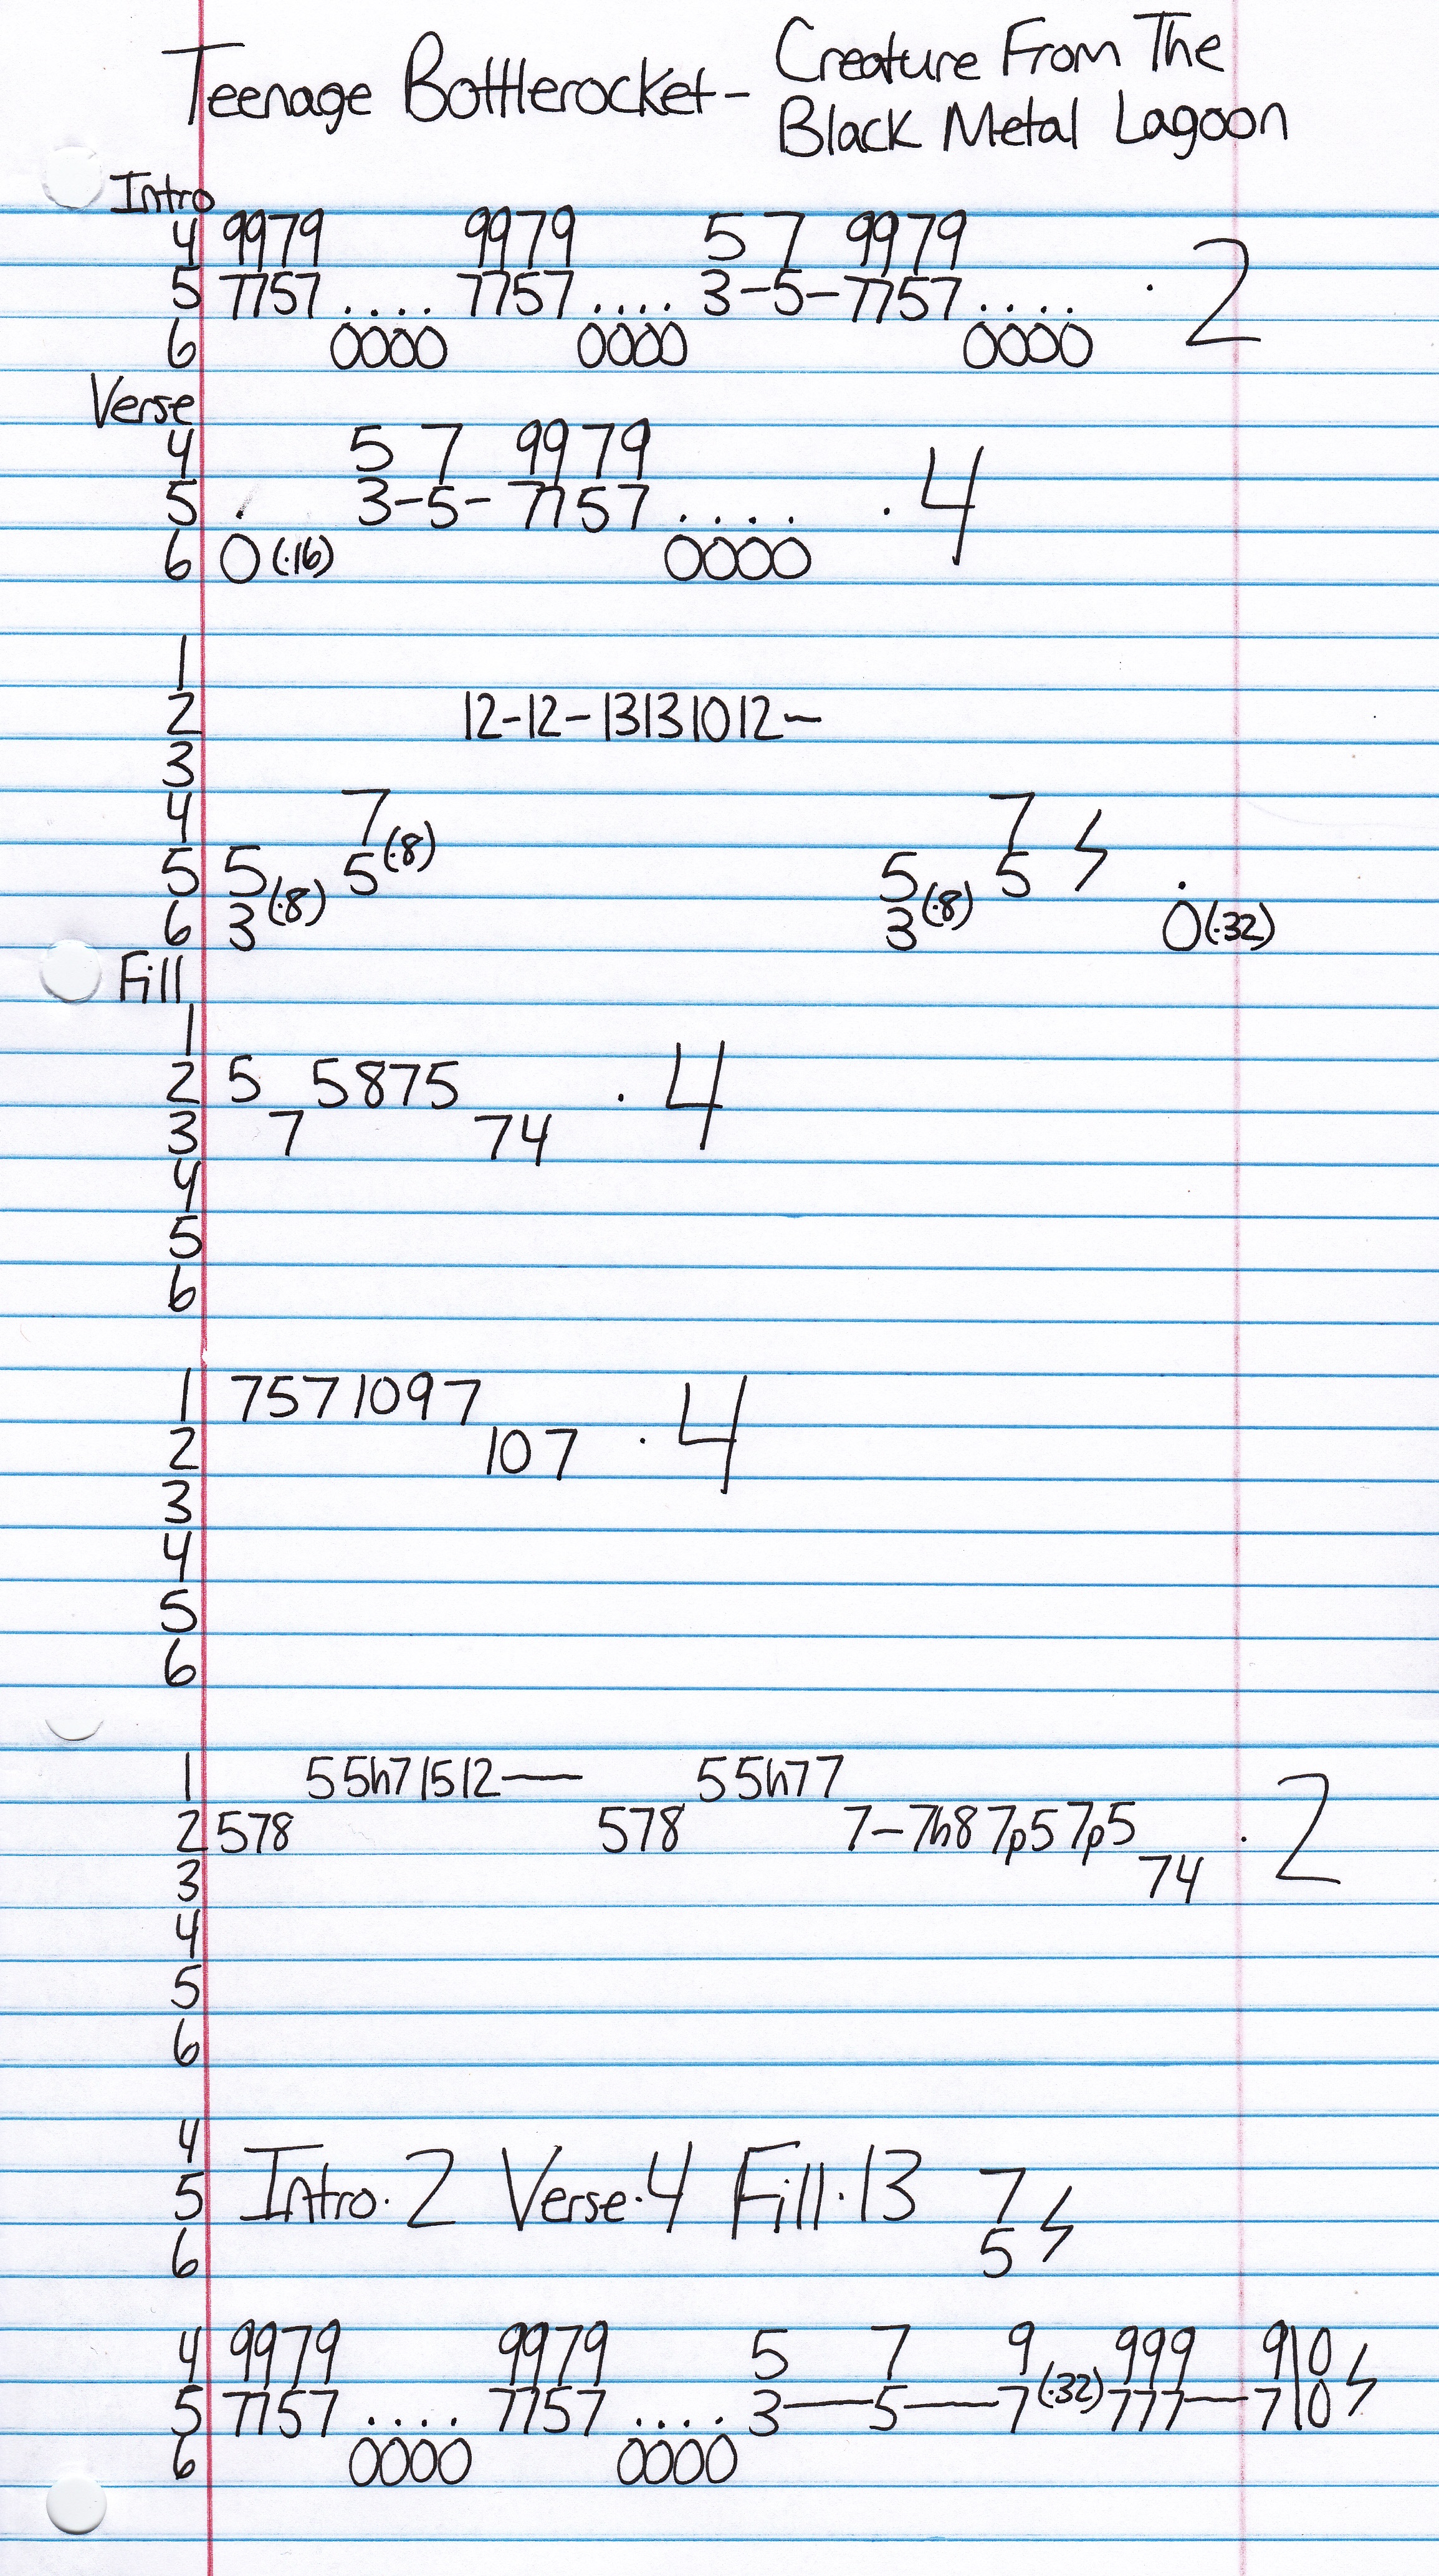 Teenage Bottlerocket - Creature From The
Black Metal Lagoon
Intro
4 9979 9979 5 7 9979
5 7757 .... 7757 .... 3-5-7757 .... · 2
6 0000 0000 0000
Verse
4 5 7 9979
5 . 3-5-7757 .... · 4
6 0 (·16) 0000
1
2 12-12-13131012-
3
4 7 7
5 5 (·8) 5 (·8) 5 (·8) 5 ϟ .
6 3 3 0 (·32)
Fill
1
2 5 5875 · 4
3 7 74
4
5
6
1 7571097
2 107 · 4
3
4
5
6
1 55h71512— 55h77
2 578 578 7-7h87p57p5 · 2
3 74
4
5
6
4
5 Intro·2 Verse·4 Fill·13 7 ϟ
6 5
4 9979 9979 5 7 9 999 910
5 7757 .... 7757 .... 3—5—7 (·32) 777—710 ϟ
6 0000 0000